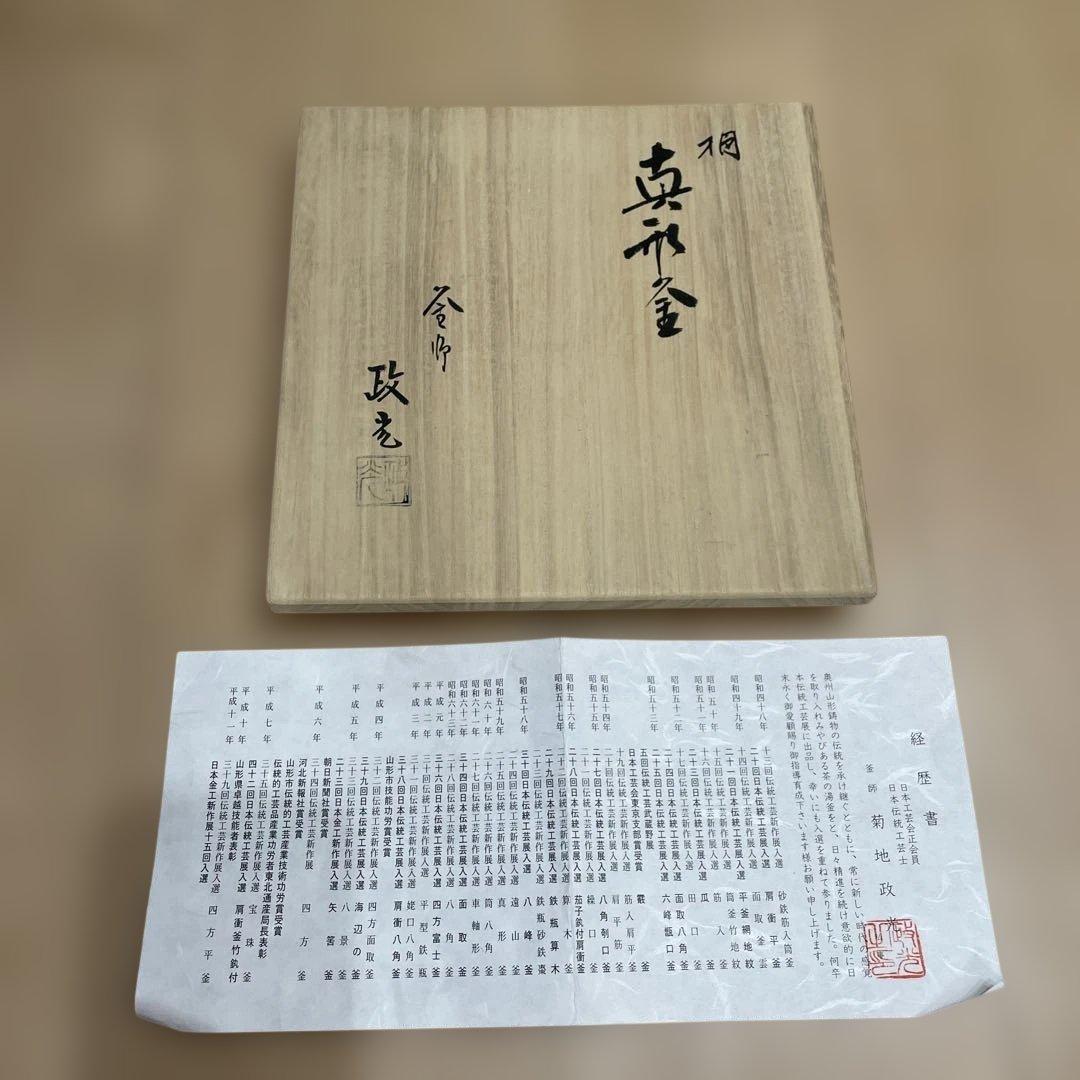 桐
真形釜
釜師
政光
経歴書
日本工芸会正会員
日本伝統工芸士
釜師 菊地政光
奥州山形鋳物の伝統を承け継ぐとともに、常に新しい時代の感覚
を取り入れみやびある茶の湯釜をと、日々精進を続け意欲的に日
本伝統工芸展に出品し、幸いにも入選を重ねて参りました。何卒
末永く御愛顧賜り御指導育成下さいます様お願い申し上げます。
昭和四十八年 十三回伝統工芸新作展入選 砂鉄筋入筒釜
二十回日本伝統工芸展入選 肩衝平釜
昭和四十九年 十四回伝統工芸新作展入選 面取釜雲
二十一回日本伝統工芸展入選 平釜網地紋
昭和五十年 十五回伝統工芸新作展入選 筒釜竹地紋
昭和五十一年 十六回伝統工芸新作展入選 筋入釜
瓜釜
昭和五十二年 十七回伝統工芸新作展入選 田口釜
二十四回日本伝統工芸展入選 面取八角釜
二十五回日本伝統工芸展入選 六峰甑口釜
昭和五十三年 五回伝統工芸武蔵野展 霰釜
日本工芸会東京支部賞受賞 筋入肩平釜
昭和五十四年 十九回伝統工芸新作展入選 肩平筋釜
二十七回日本伝統工芸展入選 八角刳口釜
昭和五十五年 繰口釜
二十八回日本伝統工芸展入選 茄子鈙付肩衝釜
昭和五十六年 算木釜
昭和五十七年 二十九回日本伝統工芸展入選 鉄瓶算木
二十三回伝統工芸新作展入選 鉄瓶砂鉄棗
昭和五十八年 三十回日本伝統工芸展入選 八峰釜
二十四回伝統工芸新作展入選 遠山釜
昭和五十九年 真形釜
昭和六十年 筒八角釜
昭和六十一年 二十六回伝統工芸新作展入選 車軸形釜
昭和六十二年 三十四回日本伝統工芸展入選 面取釜
昭和六十三年 二十八回伝統工芸新作展入選 八角釜
平成元年 三十六回日本伝統工芸展入選 四方富士釜
平成二年 三十回伝統工芸新作展入選 平型鉄瓶
平成三年 三十八回日本伝統工芸展入選 姥口八角釜
山形市技能功労賞受賞 肩衝八角釜
平成四年 三十二回伝統工芸新作展入選 四方面取釜
三十九回日本伝統工芸展入選 海辺の釜
平成五年 三十三回伝統工芸新作展入選 八景釜
二十三回日本金工新作展入選 矢筈釜
朝日新聞社賞受賞
平成六年 三十四回伝統工芸新作展 四方釜
河北新報社賞受賞
山形市伝統的工芸産業技術功労賞受賞
平成七年 伝統的工芸品産業功労者東北通産局長表彰
三十五回伝統工芸新作展入選 宝珠釜
平成十年 四十二回日本伝統工芸展入選 肩衝釜竹鈙付
山形県卓越技能者表彰
平成十一年 三十九回伝統工芸新作展入選 四方平釜
日本金工新作展十五回入選